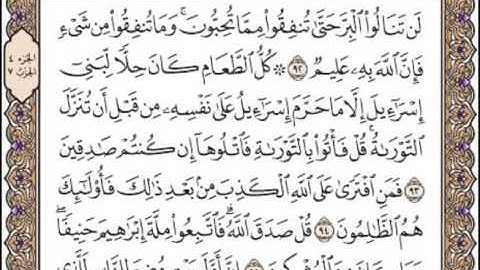 لَن تَنَالُوا۟ ٱلْبِرَّ حَتَّىٰ تُنفِقُوا۟ مِمَّا تُحِبُّونَ ۚ وَمَا تُنفِقُوا۟ مِن شَىْءٍ
فَإِنَّ ٱللَّهَ بِهِۦ عَلِيمٌ ٩٢ ۞ كُلُّ ٱلطَّعَامِ كَانَ حِلًّا لِّبَنِىٓ
إِسْرَٰٓءِيلَ إِلَّا مَا حَرَّمَ إِسْرَٰٓءِيلُ عَلَىٰ نَفْسِهِۦ مِن قَبْلِ أَن تُنَزَّلَ
ٱلتَّوْرَىٰةُ ۗ قُلْ فَأْتُوا۟ بِٱلتَّوْرَىٰةِ فَٱتْلُوهَآ إِن كُنتُمْ صَٰدِقِينَ
٩٣ فَمَنِ ٱفْتَرَىٰ عَلَى ٱللَّهِ ٱلْكَذِبَ مِنۢ بَعْدِ ذَٰلِكَ فَأُو۟لَٰٓئِكَ
هُمُ ٱلظَّٰلِمُونَ ٩٤ قُلْ صَدَقَ ٱللَّهُ ۗ فَٱتَّبِعُوا۟ مِلَّةَ إِبْرَٰهِيمَ حَنِيفًا ۖ
الجزء ٤
الحزب ٧